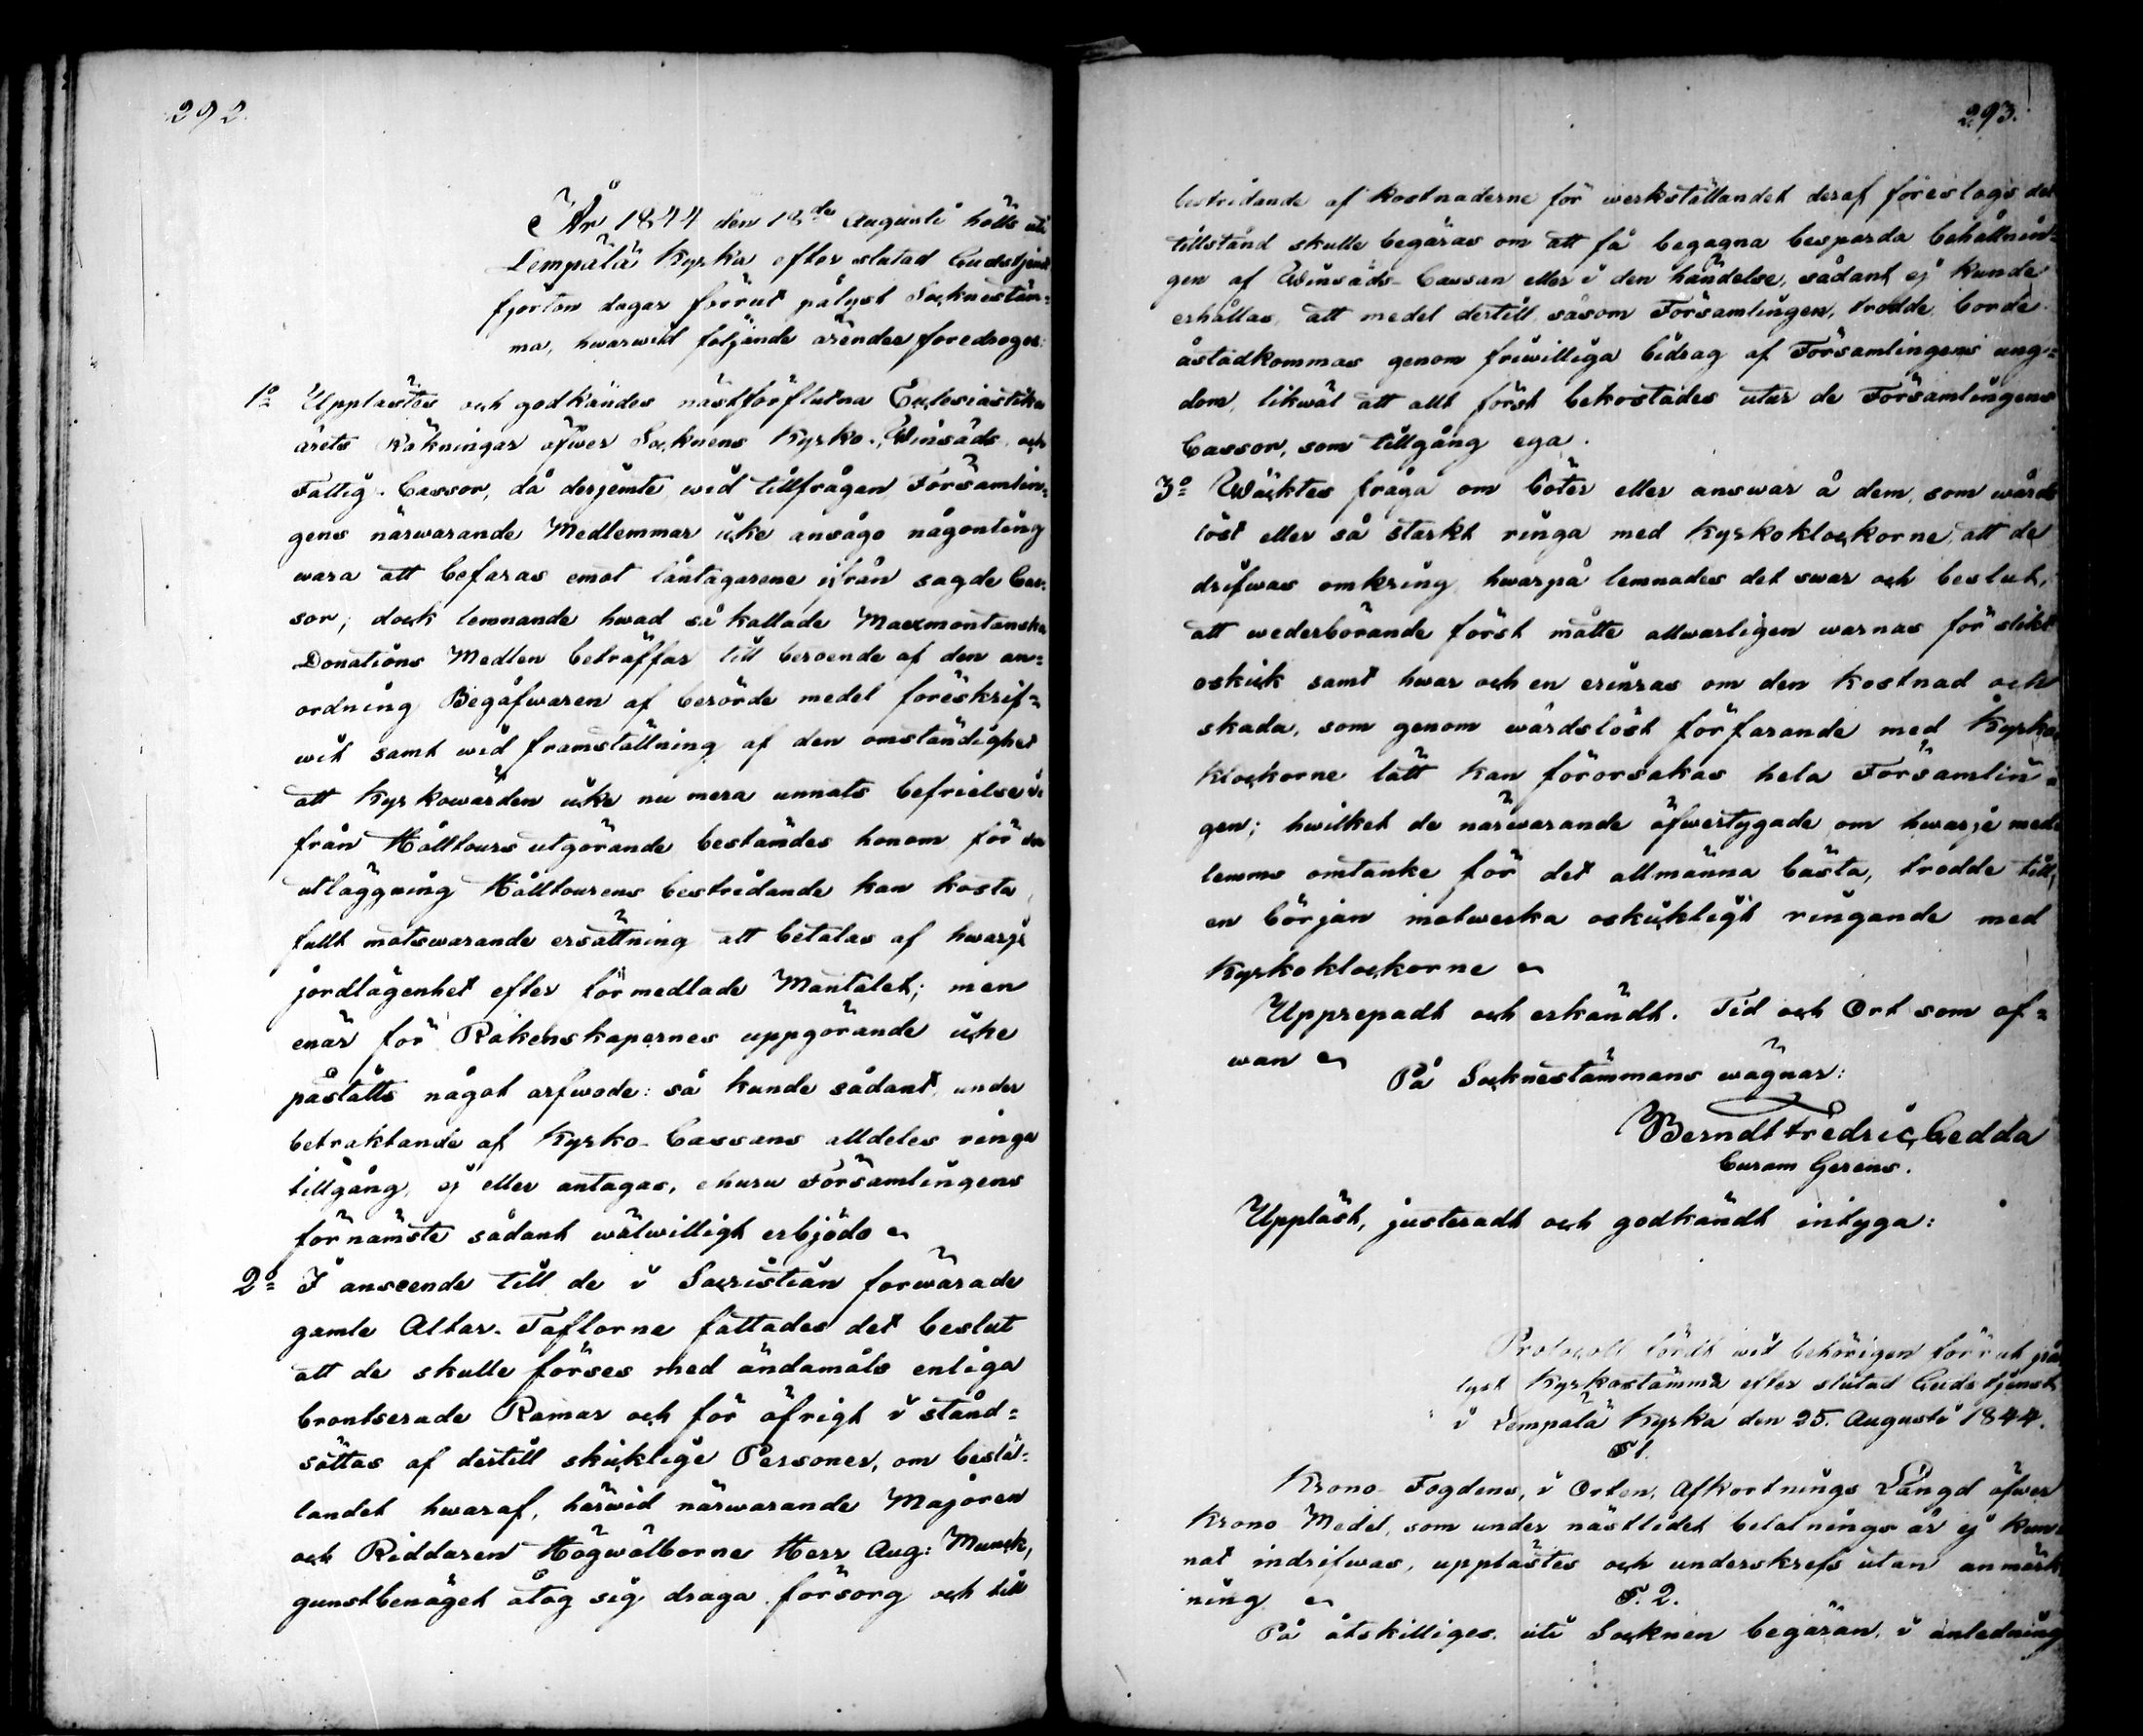 292.
År 1844 den 18de Augusti hölls uti
Lempälä Kyrka efter slutad Gudstjenst
fjorton dagar förrut pålyst Socknestäm=
ma, hwarwid följande ärender foredrogos:
1o Upplästes och godkändes nästförflutna Ecclesiastike
årets Räkningar öfwer Socknens Kyrko-, Winsäds- och
Fattig-Cassor, då derjemte wid tillfrågan Församlin=
gens närwarande Medlemmar icke ansågo någonting
wara att befaras emot låntagarene ifrån sagde Cas-
sor; dock lemnande hwad så kallade Maexmontanska
Donations Medlen beträffar till beroende af den an=
ordning Begåfwaren af berörde medel föreskrif=
wit samt wid framställning af den omständighet
att Kyrkowärden icke nu mera unnats befrielse i-
från Hålltours utgörande bestandes honom för den
utläggning Hålltourens bestridande kan kosta,
fullt motswarande ersättning att betalas af hwarje
jordlägenhet efter förmedlade Mantalet; men
enär för Räkenskapernes uppgörande icke
påståtts något arfwode: så kunde sådant, under
betraktande af Kyrko-Cassans alldeles ringa
tillgång, ej eller antagas, ehuru Församlingens
förnämste sådant wälwilligt erbjödo
2o I anseende till de i Sacristian förwarade
gamle Altar-Taflorne fattades det beslut
att de skulle förses med ändamåls enliga
brontserade Ramar och för öfrigt i stånd=
sättas af dertill skicklige Personer, om bestäl-
landet hwaraf, härwid närwarande Majoren
och Riddaren Högwälborne Herr Aug: Munck,
gunstbenäget åtog sig draga försorg och till
293.
bestridande af kostnaderne för werkställandet deraf föreslogs det
tillstånd skulle begäras om att få begagna besparda behållnin=
gen af Winsäds-Cassan eller i den händelse, sådant ej kunde
erhållas, att medel dertill, såsom Församlingen, trodde, borde
åstadkommas genom friwilliga bidrag af Församlingens ung=
dom, likwäl att allt först bekostades utur de Församlingens
Cassor, som tillgång ega.
3o Wäcktes fråga om böter eller answar å dem, som wårds
löst eller så starkt ringa med Kyrkoklockorne, att de
drifwas omkring, hwarpå lemnades det swar och beslut,
att wederbörande först måtte allwarligen warnas för slikt
oskick samt hwar och en erinras om den kostnad och
skada, som genom wårdslöst förfarande med Kyrko=
klockorne lätt kan förorsakas hela Församlin=
gen; hwilket de närwarande öfwertygade om hwarje med=
lemms omtanke för det allmänna bästa, trodde till
en början motwerka oskickligt ringande med
Kyrkoklockorne
Upprepadt och erkändt. Tid och Ort som of=
wan
På Socknestämmans wägnar:
Berndt Fredric Gedda
Curam Gerens.
Uppläst, justeradt och godkändt intyga:
Protocoll fördt wid behörigen förrut på
lyst Kyrkostämma efter slutad Gudstjenst
i Lempälä Kyrka den 25. Augusti 1844.
§ 1.
Krono Fogdens, i Orten, Afkortnings Längd öfwer
Krono Medel, som under nästlidet betalnings år ej kun-
nat indrifwas, upplästes och underskrefs utan anmärk
ning
§. 2.
På åtskilliges uti Socknen begäran, i anledning